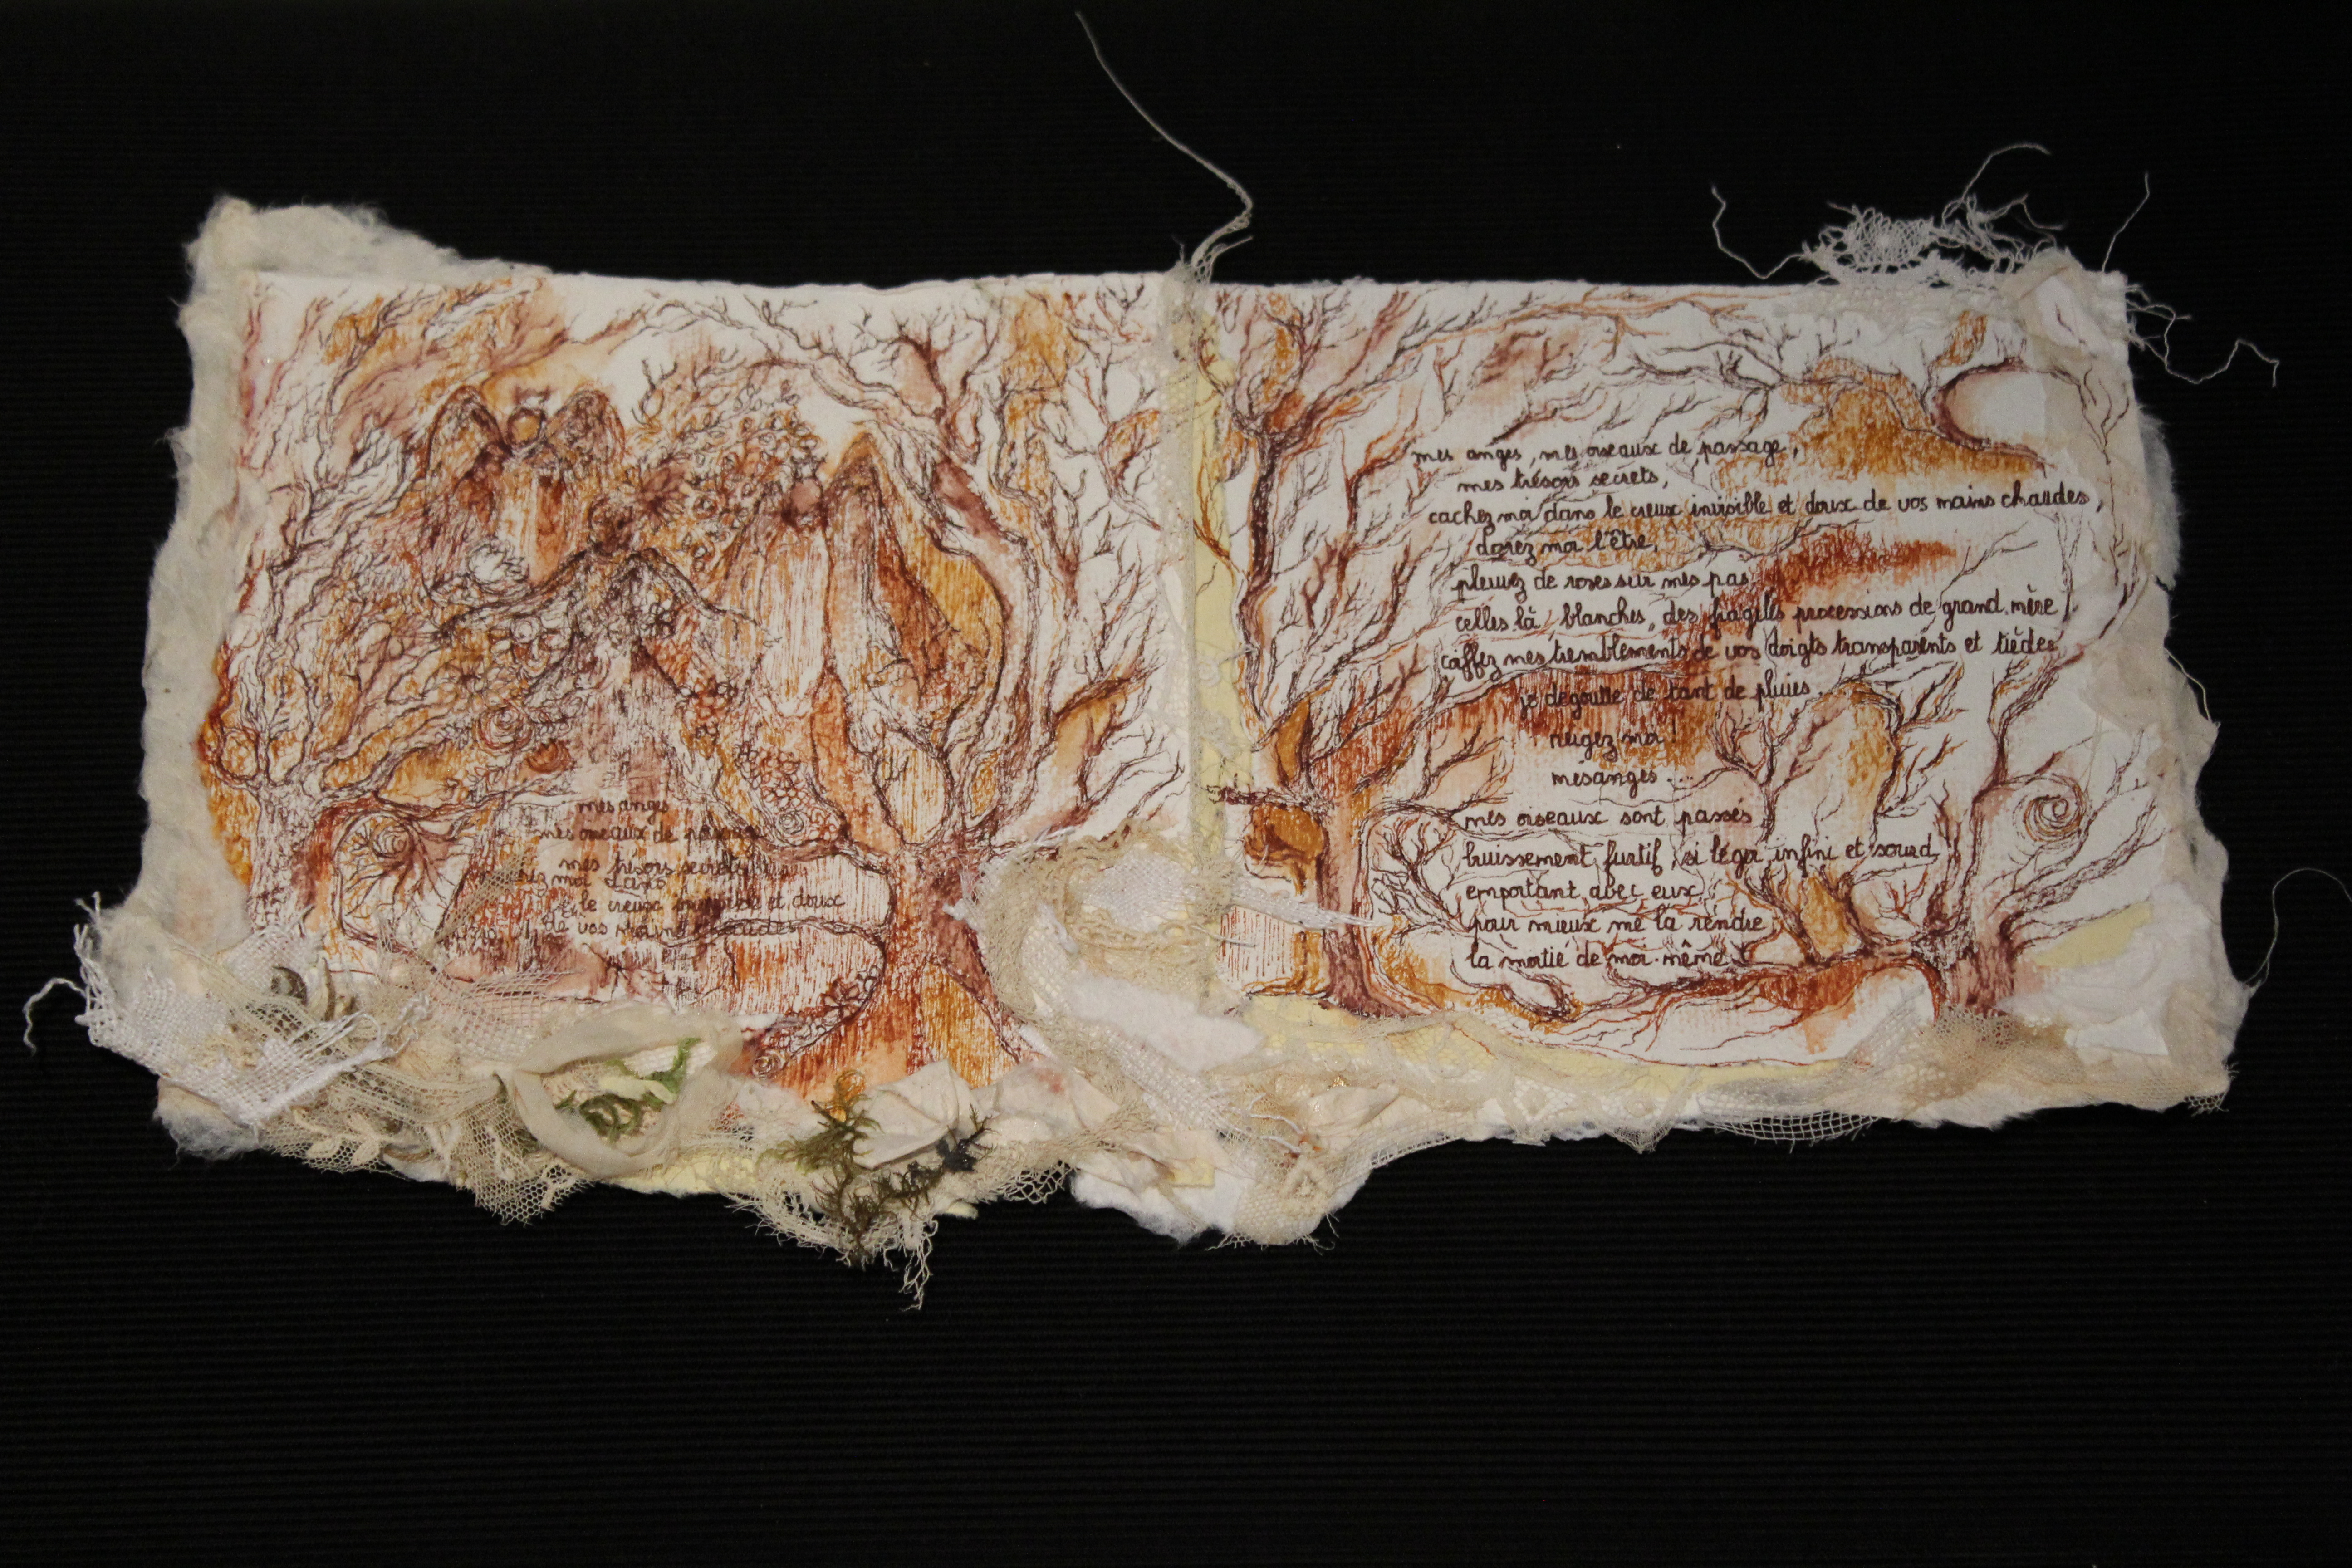 mes anges
mes oiseaux de passage
mes trésors secrets
ez moi dans
le creux invisible et doux
de vos mains chaudes
mes anges, mes oiseaux de passage,
mes trésors secrets,
cachez moi dans le creux invisible et doux de vos mains chaudes,
dorez moi l'être,
pleuvez de roses sur mes pas,
celles là, blanches, des fragiles processions de grand.mère
coiffez mes tremblements de vos doigts transparents et tièdes
je dégoutte de tant de pluies.
neigez moi!
mésanges....
mes oiseaux sont passés
bruissement furtif, si léger, infini et sourd
emportant avec eux,
pour mieux me la rendre,
la moitié de moi-même.